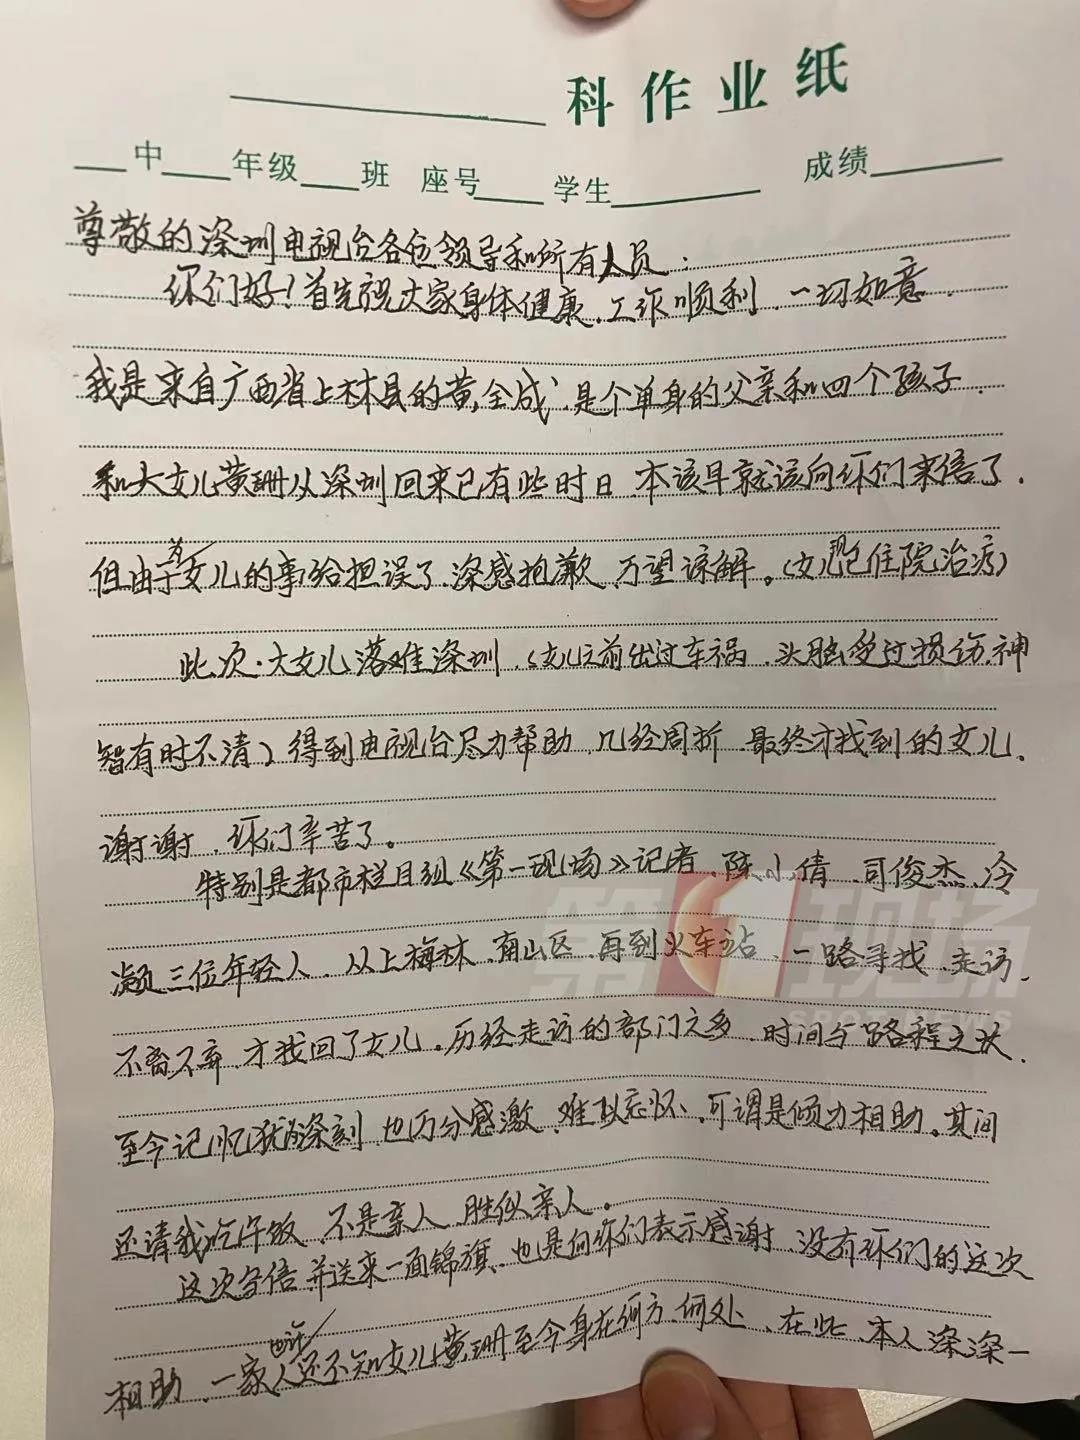 科作业纸
中 年级 班 座号 学生 成绩
尊敬的深圳电视台各位领导和所有人员：
你们好！首先祝大家身体健康、工作顺利、一切如意．
我是来自广西省上林县的黄全成，是个单身的父亲和四个孩子．
和大女儿黄珊从深圳回来已有些时日、本该早就该向你们来信了．
但由于为女儿的事给担误了、深感抱歉、万望谅解。（女儿现已住院治疗）
此次．大女儿落难深圳、（女儿之前出过车祸、头脑受过损伤、神
智有时不清）得到电视台尽力帮助、几经周折、最终才找到的女儿．
谢谢、你们辛苦了。
特别是都市栏目组《第一现场》记者、陈小倩、司俊杰、冷
凝三位年轻人、从上梅林、南山区、再到火车站、一路寻找、走访．
不离不弃、才找回了女儿。历经走访的部门之多、时间与路程之长．
至今记忆犹为深刻、也万分感激、难以忘怀、可谓是倾力相助。其间
还请我吃午饭、不是亲人、胜似亲人。
这次写信并送来一面锦旗、也是向你们表示感谢、没有你们的这次
相助、一家人也许还不知女儿黄珊至今身在何方、何处、在此、本人深深一
第1现场
SPOT NEWS